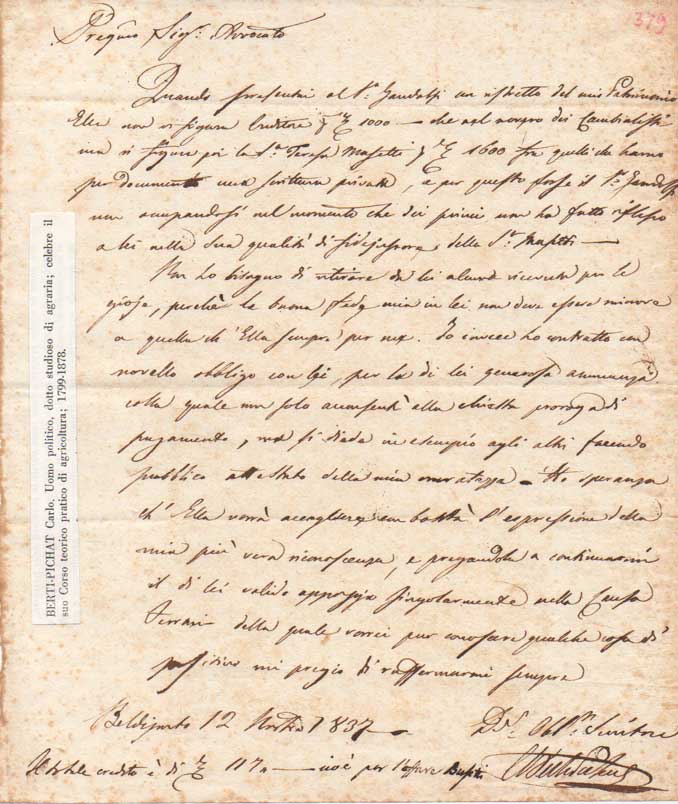 379
Pregmo Sigr. Avvocato
Quando presentai al Sr. Gandolfi un ristretto del mio Patrimonio
Ella non vi figura Creditore 1000 — che nel novero dei Cambialisti
ma vi figura poi la Sra. Teresa Masetti 1600 fra quelli che hanno
per documento una scrittura privata, e per questo forse il Sr. Gandolfi
non occupandosi nel momento che dei primi non ha fatto riflesso
a lei nella sua qualità di fidejussore della Sra. Masetti —
Non ho bisogno di ritirare da lei alcuna ricevuta per le
gioje, perchè la buona fede mia in lei non deve essere minore
a quella ch' Ella sempre per me. Io invece ho contratto un
novello obbligo con lei, per la di lei generosa annuenza
colla quale non solo acconsentì alla chiesta proroga di
pagamento, ma si diede in esempio agli altri facendo
pubblico attestato della mia onoratezza. Ho speranza
ch' Ella vorrà accogliere con bontà l' espressione della
mia più vera riconoscenza, e pregandola a continuarmi
il di lei valido appoggio singolarmente nella Causa
Ferrari della quale vorrei pur conoscere qualche cosa di
positivo mi pregio di raffermarmi sempre
12 1837
Servitore
Il totale credito è di 117 — cioè per
BERTI-PICHAT Carlo. Uomo politico, dotto studioso di agraria; celebre il
suo Corso teorico pratico di agricoltura; 1799-1878.